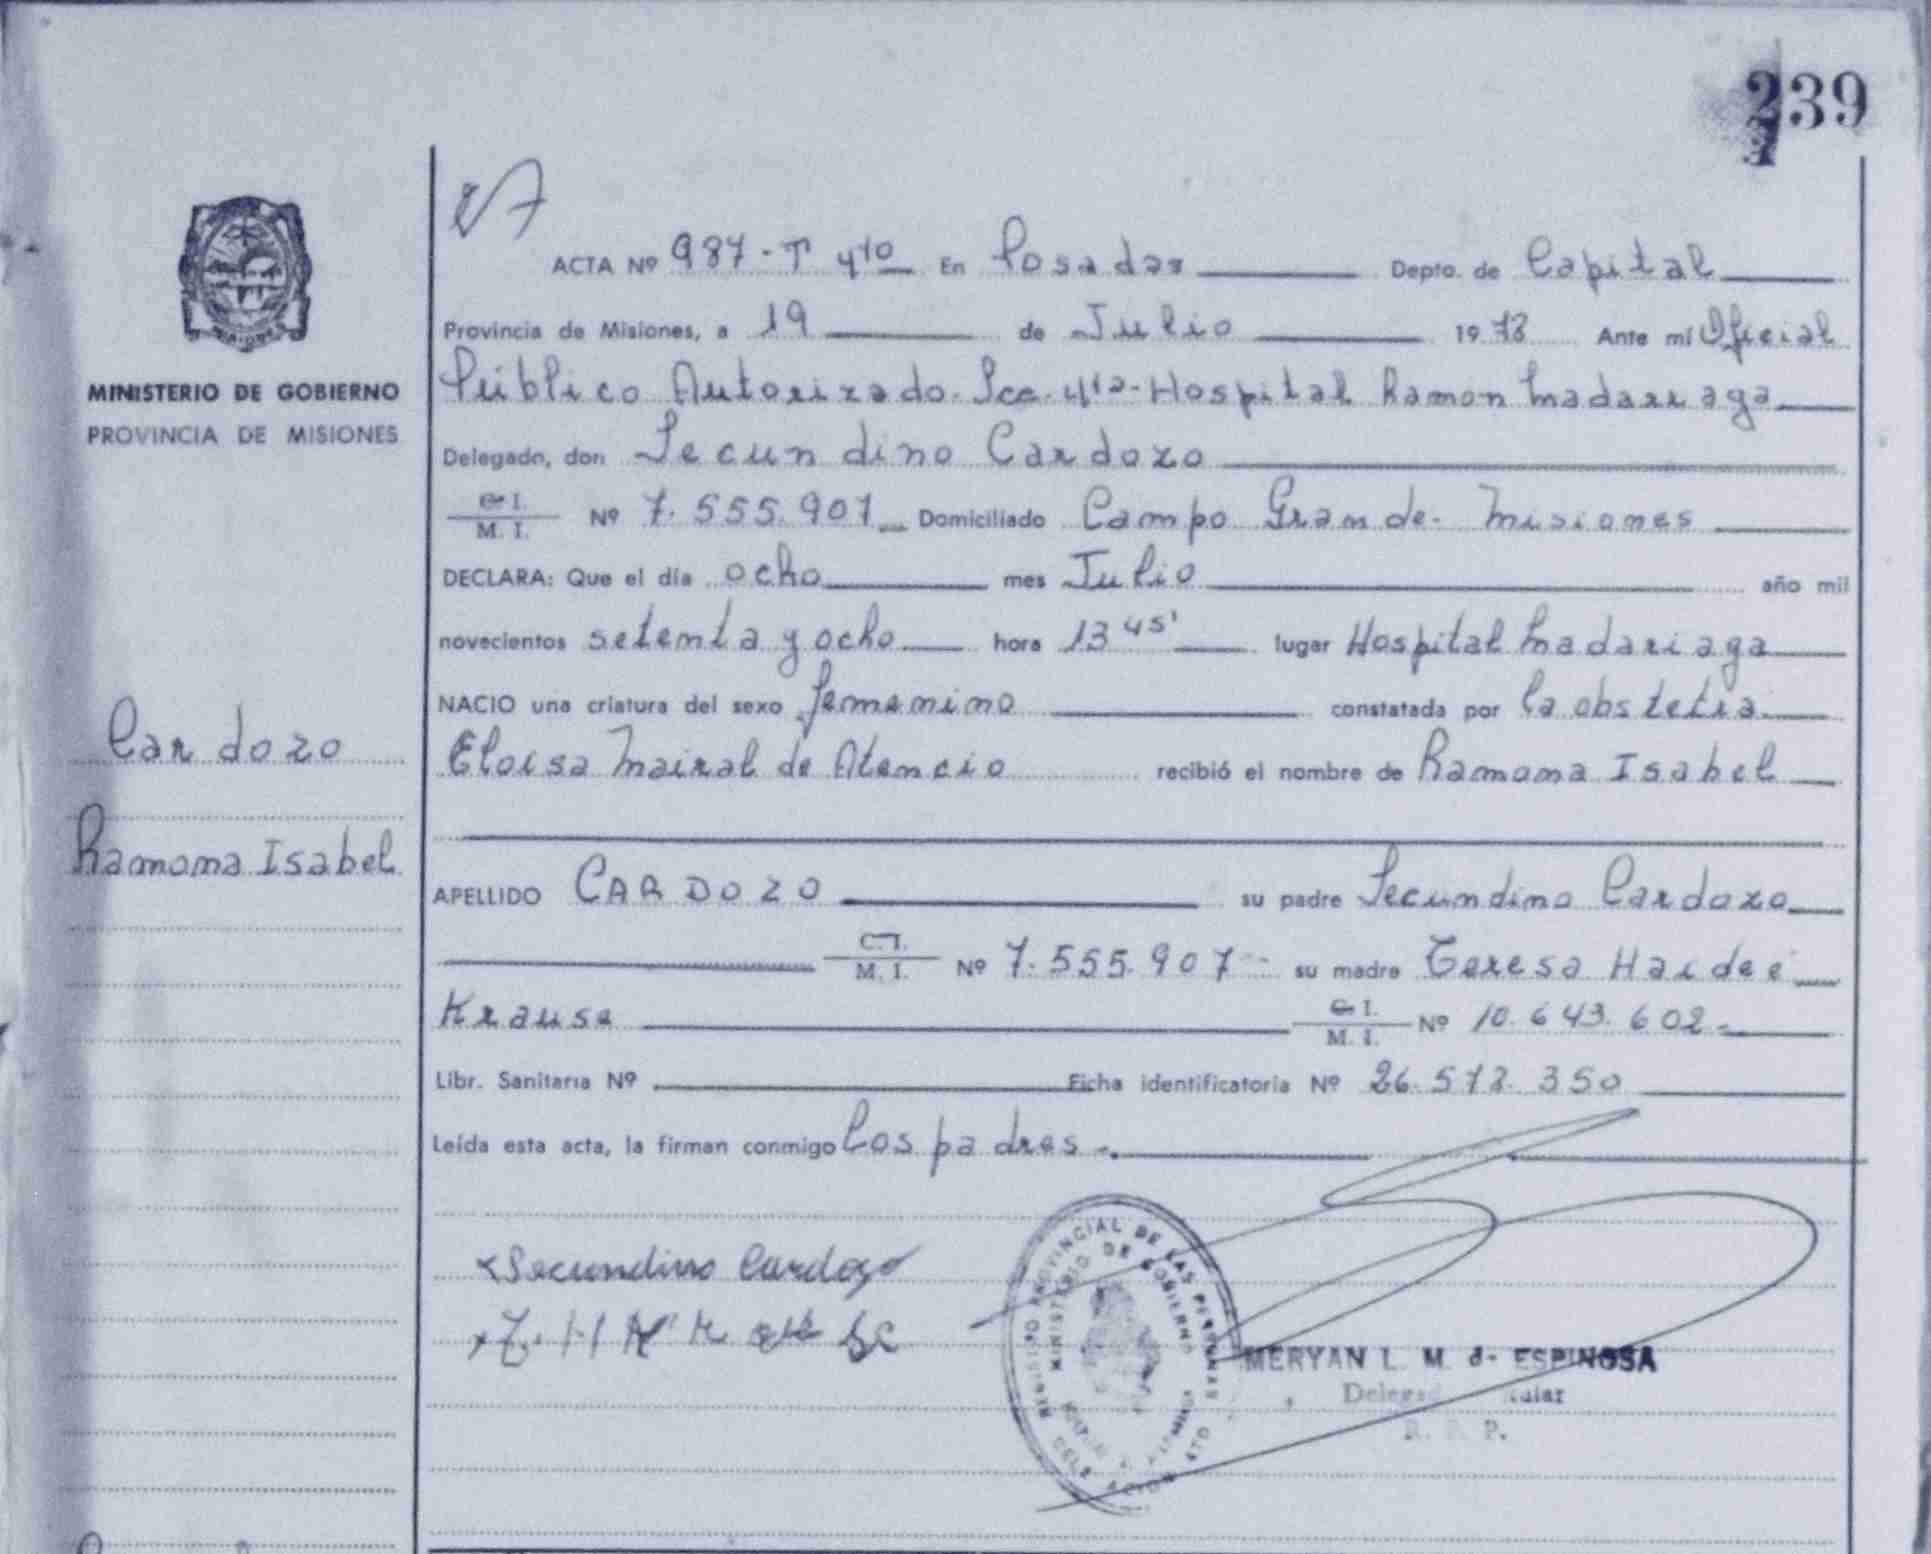 239
ACTA Nº 987-T 4to En Posadas Depto. de Capital
Provincia de Misiones, a 19 de Julio 1978 Ante mí Oficial
Público Autorizado. Sec. 4ta-Hospital Ramón Madarriaga
MINISTERIO DE GOBIERNO
PROVINCIA DE MISIONES
Delegado, don Secundino Cardozo
C. I.
M. I. Nº 7.555.907 Domiciliado Campo Grande - Misiones
DECLARA: Que el día ocho mes Julio año mil
novecientos setenta y ocho hora 13 45' lugar Hospital Madariaga
NACIO una criatura del sexo femenino constatada por la obstetra
Cardozo
Eloisa Mairal de Atencio recibió el nombre de Ramona Isabel
Ramona Isabel
APELLIDO CARDOZO su padre Secundino Cardozo
C. I.
M. I. Nº 7.555.907 su madre Teresa Haidee
Krause C. I.
M. I. Nº 10.643.602
Libr. Sanitaria Nº Ficha identificatoria Nº 26.572.350
Leída esta acta, la firman conmigo los padres
Secundino Cardozo
REGISTRO PROVINCIAL DE LAS PERSONAS
MINISTERIO DE GOBIERNO
MERYAN L. M. d- ESPINOSA